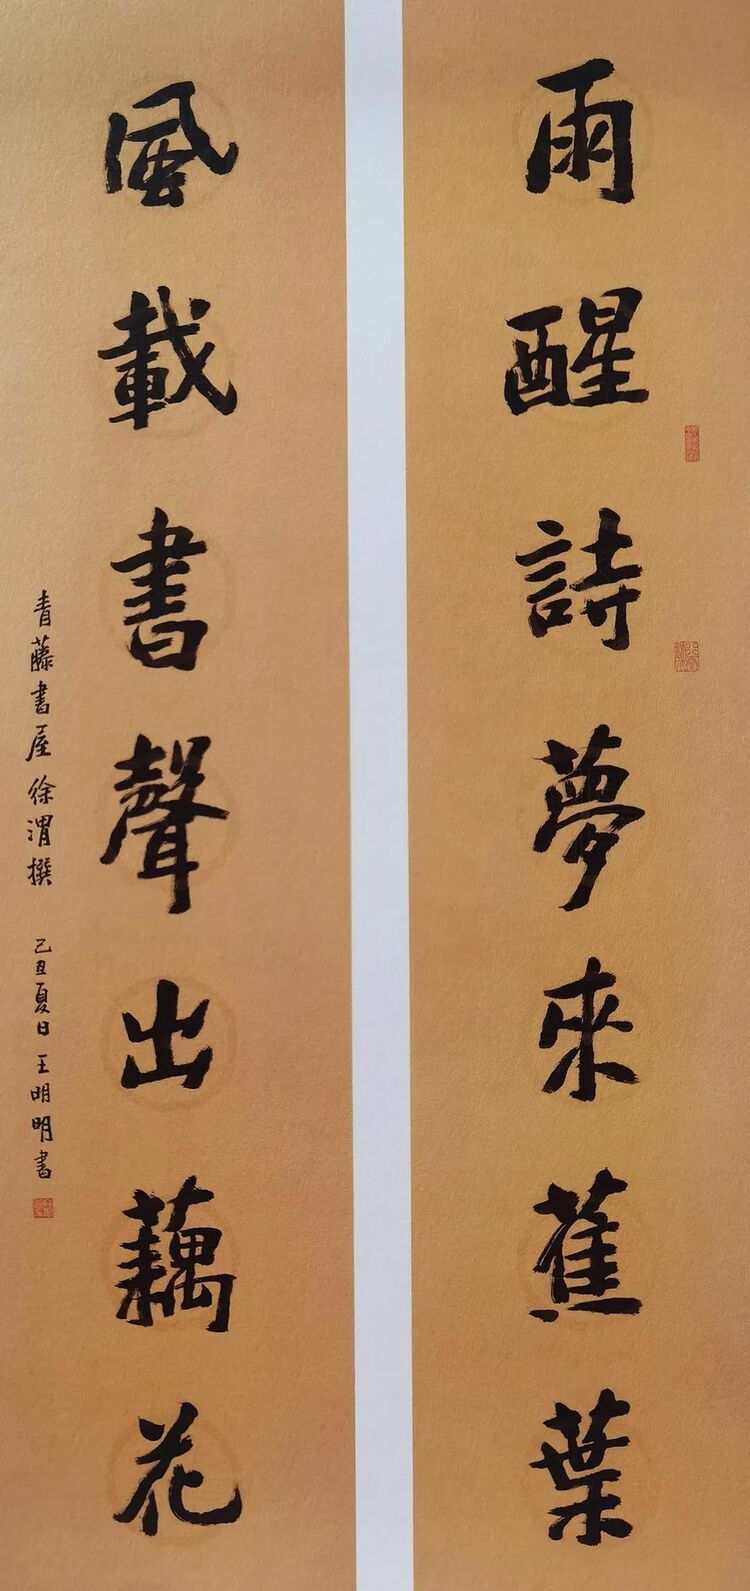 雨醒詩夢來蕉葉
風載書聲出藕花
青藤書屋徐渭撰 己丑夏日王明明書